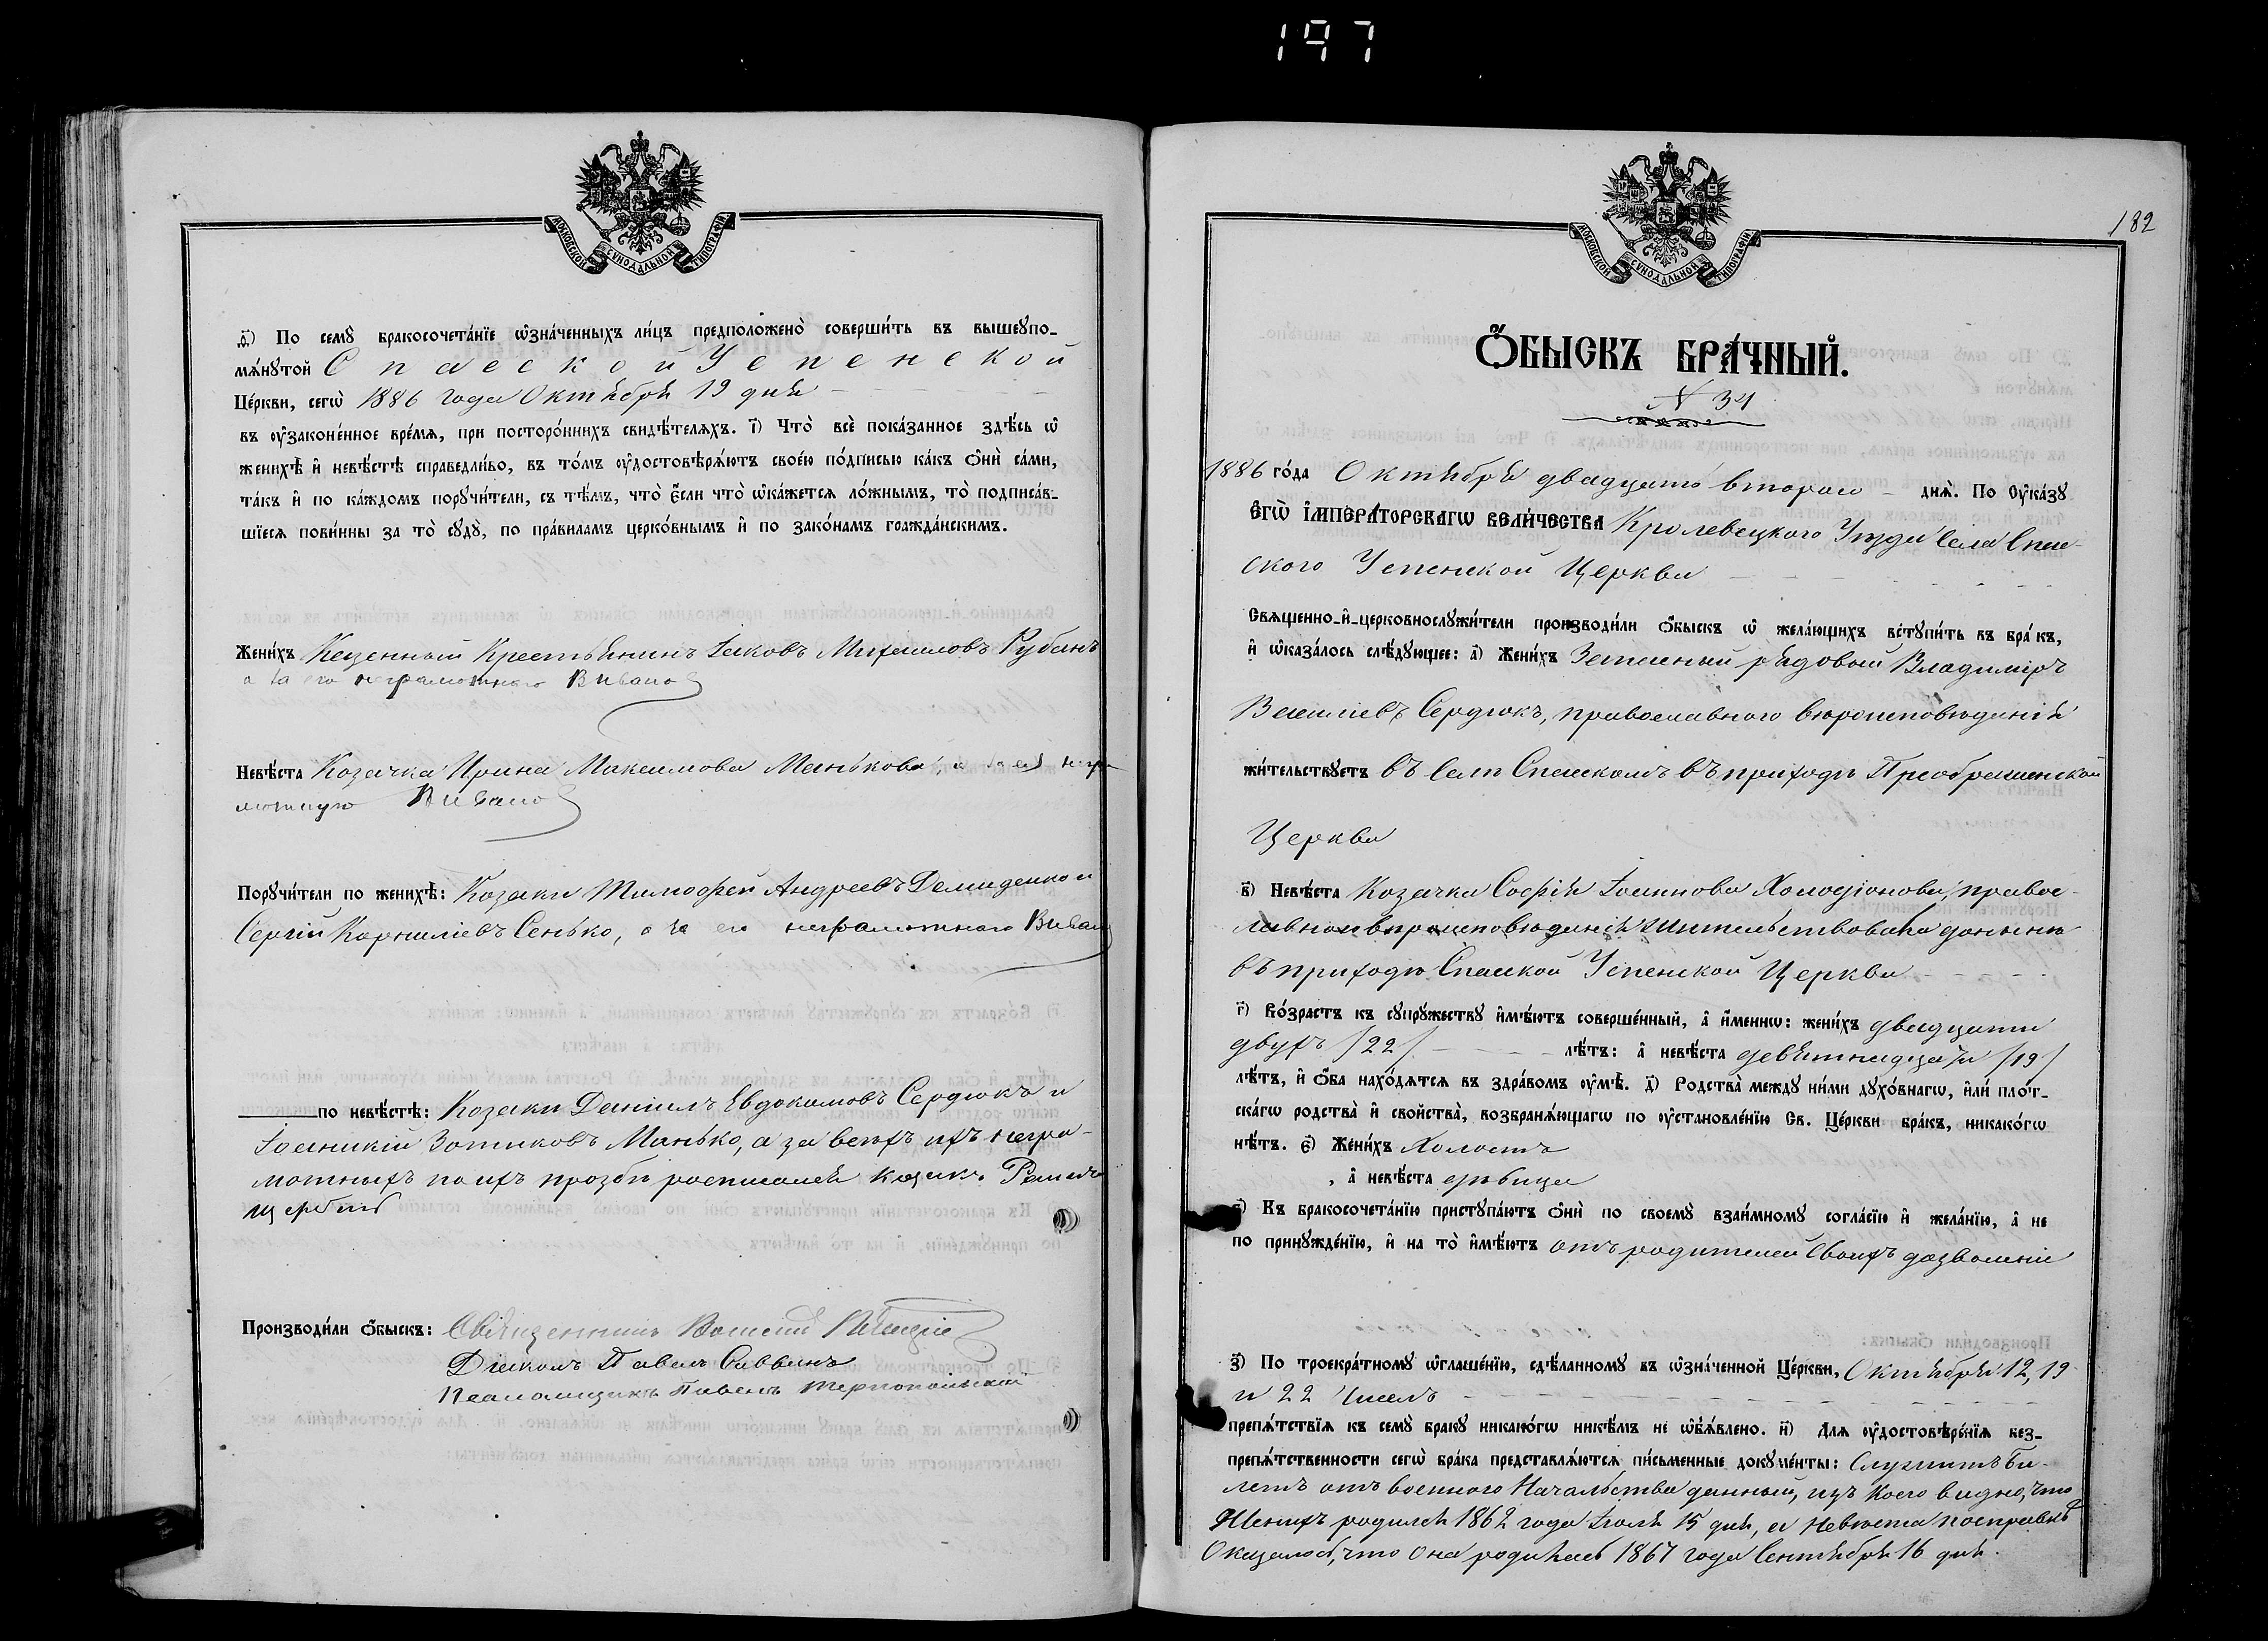 197
МОСКОВСКОЙ СѴНОДАЛЬНОЙ ТИПОГРАФІИ
д҃) По семꙋ̀ бракосочета́нїе ѡ҆зна́ченныхъ ли́цъ предположено̀ соверши́ть въ вышеꙋпо-
мѧ́нꙋтой Спасской Успенской
Це́ркви, сегѡ̀ 1886 года Октября 19 дня
въ ᲂу҆законе́нное вре́мѧ, при посторо́ннихъ свидѣ́телѧхъ. і҃) Что̀ всѐ пока́занное здѣ́сь ѡ҆
женихѣ̀ и҆ невѣ́стѣ справедли́во, въ то́мъ ᲂу҆достовѣрѧ́ютъ свое́ю по́дписью ка́къ ѻ҆нѝ са́ми,
та́къ и҆ по ка́ждомъ порꙋчи́тели, съ тѣ́мъ, что̀ є҆́сли что̀ ѡ҆ка́жетсѧ ло́жнымъ, то̀ подписа́в-
шїесѧ пови́нны за то̀ сꙋдꙋ̀, по пра́виламъ церко́внымъ и҆ по зако́намъ гражда́нскимъ.
Жени́хъ Казенный Крестьянинъ Іаковъ Михаиловъ Рубанъ
а за его неграмотнаго
Невѣ́ста Козачка Ирина Максимова Манькова, а за ея негра-
мотную
Порꙋчи́тели по женихѣ̀: Козаки Тимофей Андреевъ Демиденко и
Сергій Корниліевъ Сенько, а за его неграмотнаго
по невѣ́стѣ: Козаки Даніилъ Евдокимовъ Сердюкъ и
Іоанникій Зотиковъ Манько, а за всѣхъ ихъ негра-
мотныхъ по ихъ прозбѣ росписался козакъ Романъ
Щербакъ
Производи́ли ѻ҆́быскъ: Священникъ
Діаконъ Павелъ Саввинъ
Псаломщикъ Павелъ Тернопольскій
182
МОСКОВСКОЙ СѴНОДАЛЬНОЙ ТИПОГРАФІИ
Ѻ҆́БЫСКЪ БРА́ЧНЫЙ.
№ 34
1886 го́да Октября двадцать второго днѧ̀. По ᲂу҆ка́зꙋ
Є҆ГѠ̀ І҆МПЕРА́ТОРСКАГѠ ВЕЛИ́ЧЕСТВА Кролевецкого Уѣзда Села Спас-
ского Успенской Церкви
Свѧщенно-и҆-церковнослꙋжи́тели производи́ли ѻ҆́быскъ ѡ҆ жела́ющихъ встꙋпи́ть въ бра́къ,
и҆ ѡ҆каза́лось слѣ́дꙋющее: а҃) Жени́хъ Запасный рядовый Владиміръ
Василіевъ Сердюкъ, православного вѣроисповѣданія
жи́тельствꙋетъ въ Селѣ Спасскомъ въ приходѣ Преображенской
Церкви
в҃) Невѣ́ста Козачка Софія Іоаннова Холодіонова, правос-
лавного вѣроисповѣданія жительствовала донынѣ
въ приходѣ Спасской Успенской Церкви
г҃) Во́зрастъ къ сꙋпрꙋ́жествꙋ и҆мѣ́ютъ соверше́нный, а҆ и҆́меннѡ: жени́хъ двадцати
двухъ /22/ лѣ́тъ: а҆ невѣ́ста девятнадцати /19/
лѣ́тъ, и҆ ѻ҆́ба нахо́дѧтсѧ въ здра́вомъ ᲂу҆мѣ̀. д҃) Родства̀ междꙋ ни́ми дꙋхо́внагѡ, и҆лѝ пло́т-
ска́гѡ родства̀ и҆ свойства̀, возбранѧ́ющагѡ по ᲂу҆становле́нїю Св. Це́ркви бра́къ, никако́гѡ
нѣ́тъ. є҃) Жени́хъ Холостъ
, а҆ невѣ́ста дѣвица
ѕ҃) Къ бракосочета́нїю пристꙋпа́ютъ ѻ҆нѝ по своемꙋ̀ взаи́мномꙋ согла́сїю и҆ жела́нїю, а҆ не
по принꙋжде́нїю, и҆ на то̀ и҆мѣ́ютъ отъ родителей своихъ дозволеніе
з҃) По троекра́тномꙋ ѡ҆глаше́нїю, сдѣ́ланномꙋ въ ѡ҆зна́ченной Це́ркви, Октября 12, 19
и 22 Числъ
препѧ́тствїѧ къ семꙋ̀ бракꙋ никако́гѡ никѣ́мъ не ѡ҆б̾ѧ́влено. и҃) Длѧ ᲂу҆достовѣре́нїѧ без-
препѧ́тственности сегѡ̀ бра́ка представлѧ́ютсѧ пи́сьменные докꙋме́нты: Служитъ би-
летъ отъ военного Начальства данный, изъ коего видно, что
Женихъ родился 1862 года Іюля 15 дня, а Невѣста по справкѣ
Оказалось, что она родилась 1867 года Сентября 16 дня.